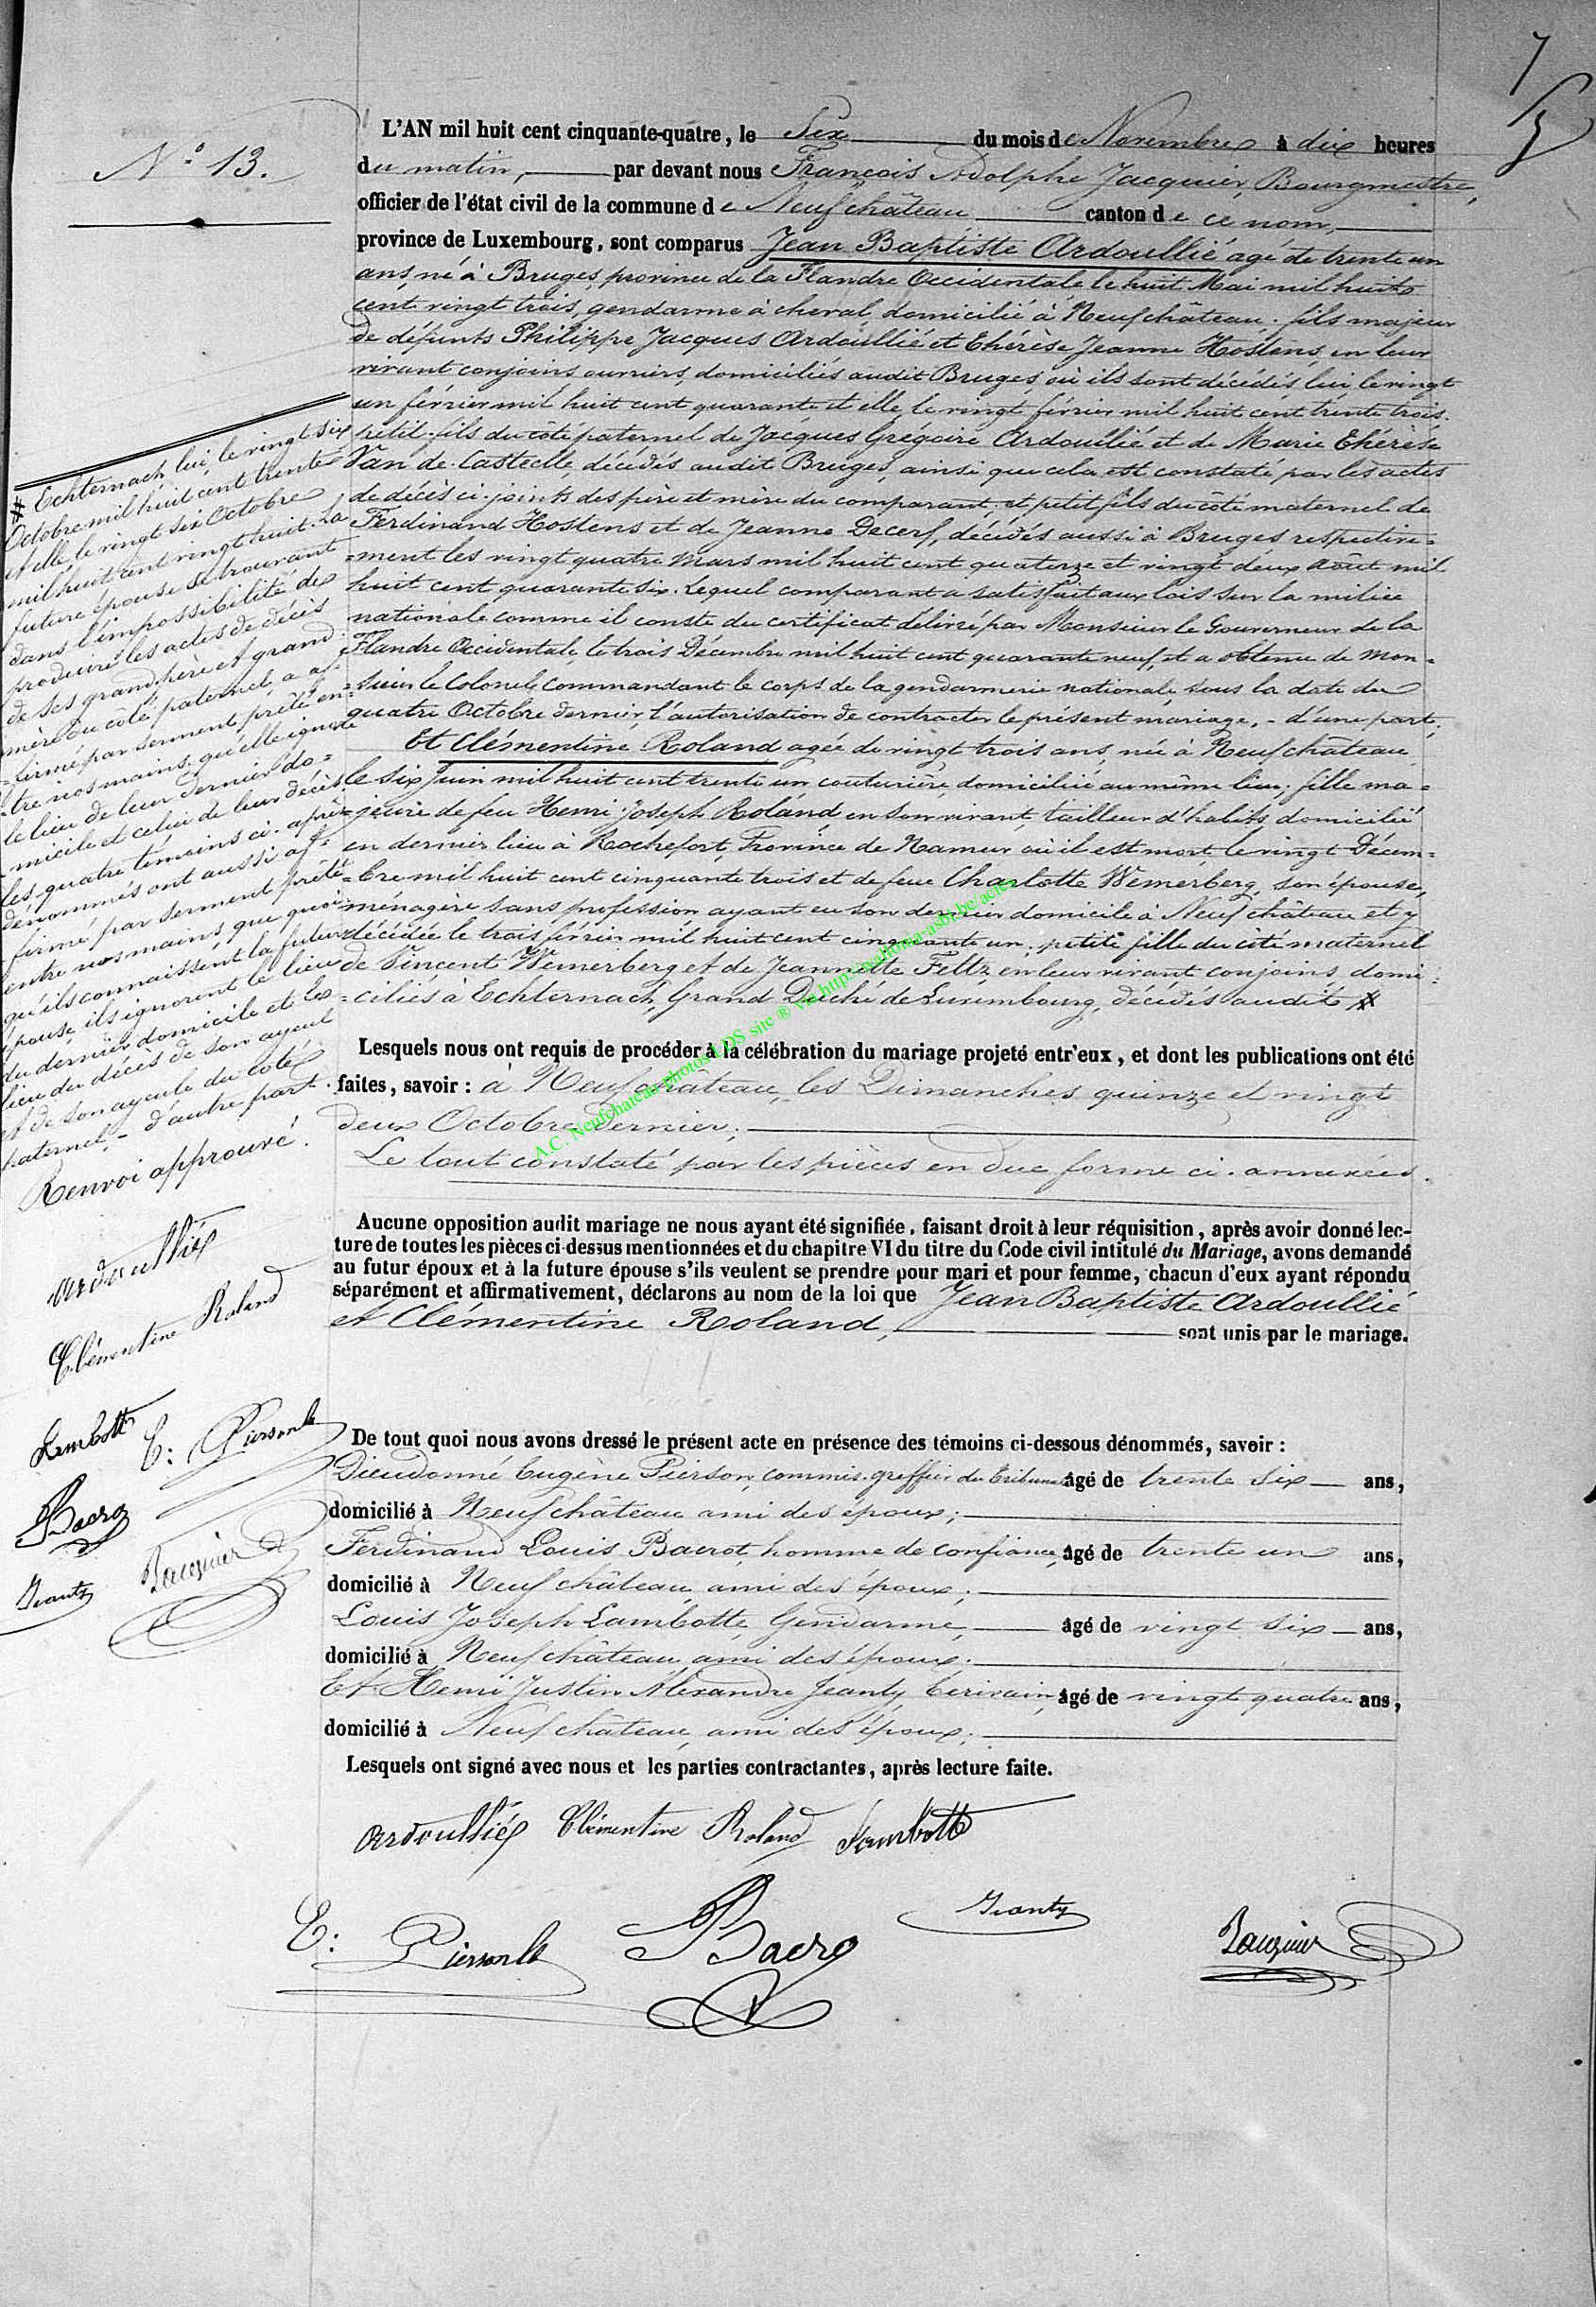 7/5
N° 13.
L'AN mil huit cent cinquante-quatre, le Six du mois de Novembre à dix heures
du matin, par devant nous François Adolphe Jacquier, Bourgmestre,
officier de l'état civil de la commune de Neufchâteau canton de ce nom,
province de Luxembourg, sont comparus Jean Baptiste Ardoullié agé de trente un
ans, né à Bruges, province de la Flandre Occidentale le huit Mai mil huit
cent vingt trois, gendarme à cheval, domicilié à Neufchâteau; fils majeur
de défunts Philippe Jacques Ardoullié et Thérèse Jeanne Hostens, en leur
vivant conjoins ouvriers, domiciliés audit Bruges, où ils sont décédés, lui, le vingt
un février mil huit cent quarante et elle, le vingt février mil huit cent trente trois.
petit-fils du côté paternel de Jacques Grégoire Ardoullié et de Marie Thérèse
Van de Casteelle décédés audit Bruges, ainsi que cela est constaté par les actes
de décès ci-joints des père et mère du comparant; et petit fils du côté maternel de
Ferdinand Hostens et de Jeanne Decerf, décédés aussi à Bruges respective=
=ment les vingt quatre Mars mil huit cent quatorze et vingt deux Août mil
huit cent quarante six. Lequel comparant a satisfait aux lois sur la milice
nationale comme il conste du certificat délivré par Monsieur le Gouverneur de la
Flandre Occidentale, le trois Décembre mil huit cent quarante neuf, et a obtenu de Mon=
=sieur le Colonel commandant le corps de la gendarmerie nationale, sous la date du
quatre Octobre dernier, l'autorisation de contracter le présent mariage, - d'une part;
Et Clémentine Roland, agée de vingt trois ans, née à Neufchâteau
le six Juin mil huit cent trente un couturière, domiciliée au même lieu; fille ma=
=jeure de feu Henri Joseph Roland, en son vivant, tailleur d'habits, domicilié
en dernier lieu à Rochefort, Province de Namur où il est mort le vingt Décem=
=bre mil huit cent cinquante trois et de feue Charlotte Wemerberg, son épouse,
ménagère sans profession ayant eu son dernier domicile à Neufchâteau et y
décédée le trois février mil huit cent cinquante un; petite fille du côté maternel
de Vincent Wemerberg et de Jeannette Feltz en leur vivant conjoins, domi=
=ciliés à Echternach, Grand Duché de Luxembourg, décédés audit #
# Echternach, lui, le vingt six
Octobre mil huit cent trente
et elle, le vingt six Octobre
mil huit cent vingt huit. La
future épouse se trouvant
dans l'impossibilité de
produire les actes de décès
de ses grand père et grand
mère du côté paternel, a af=
=firmé par serment prêté en=
=tre nos mains qu'elle ignore
le lieu de leur dernier do=
=micile et celui de leur décès.
les quatre témoins ci-après
dénommés ont aussi af=
=firmé par serment prêté
entre nos mains que quoi=
qu'ils connaissent la future
épouse, ils ignorent le lieu
du dernier domicile et le
lieu du décès de son ayeul
et de son ayeule du côté
paternel, - d'autre part.
Renvoi approuvé.
Ardoullié
Clémentine Roland
Lambotte
E: Pierson
Bacro
Jeanty
Jacquier
Lesquels nous ont requis de procéder à la célébration du mariage projeté entr'eux, et dont les publications ont été
faites, savoir: à Neufchâteau, les Dimanches quinze et vingt
deux Octobre dernier;
Le tout constaté par les pièces en due forme ci-annexées.
A.C. Neufchateau photos LDS site ® via http://wallonia-asbl.be/actes
Aucune opposition audit mariage ne nous ayant été signifiée, faisant droit à leur réquisition, après avoir donné lec-
ture de toutes les pièces ci-dessus mentionnées et du chapitre VI du titre du Code civil intitulé du Mariage, avons demandé
au futur époux et à la future épouse s'ils veulent se prendre pour mari et pour femme, chacun d'eux ayant répondu
séparément et affirmativement, déclarons au nom de la loi que Jean Baptiste Ardoullié
et Clémentine Roland, sont unis par le mariage.
De tout quoi nous avons dressé le présent acte en présence des témoins ci-dessous dénommés, savoir:
Dieudonné Eugène Pierson, commis-greffier du Tribunal âgé de trente six ans,
domicilié à Neufchâteau ami des époux;
Ferdinand Louis Bacrot, homme de confiance, âgé de trente un ans,
domicilié à Neufchâteau, ami des époux;
Louis Joseph Lambotte, Gendarme, âgé de vingt six ans,
domicilié à Neufchâteau, ami des époux;
Et Henri Justin Alexandre Jeanty, Ecrivain, âgé de vingt quatre ans,
domicilié à Neufchâteau, ami des époux;
Lesquels ont signé avec nous et les parties contractantes, après lecture faite.
Ardoullié Clémentine Roland Lambotte
E: Pierson Bacro Jeanty Jacquier